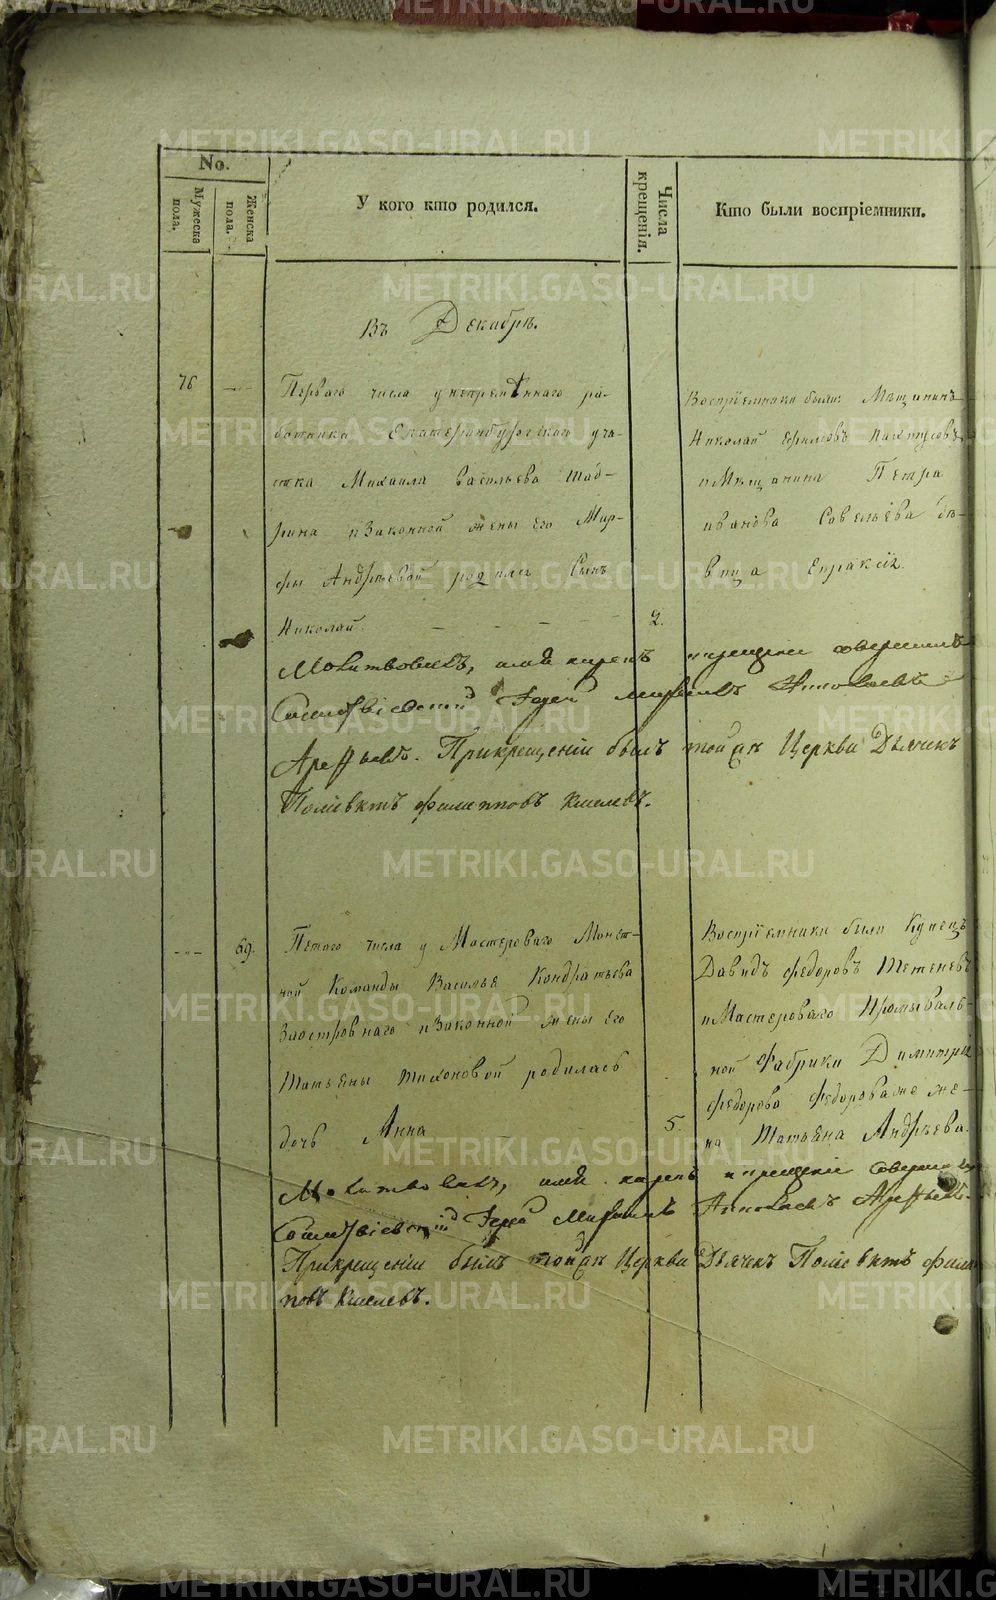 No.
Мужеска пола.
Женска пола.
У кого кто родился.
Числа крещенія.
Кто были воспріемники.
Въ Декабрѣ.
76
Перваго числа у непремѣннаго ра-
ботника Екатеринбургскаго уча-
стка Михаила Васильева Шад-
рина и Законной жены его Мар-
фы Андреевой родился Сынъ
Николай
2.
Воспріемники были: Мѣщанинъ
Николай Ефимовъ
и Мѣщанина Петра
Иванова Савельева дѣ-
вица Епраксія.
Молитвовалъ, имя нарекъ и крещеніе совершилъ
Іерей
Арефьевъ. При крещеніи былъ той же Церкви Дьячекъ
Поліевктъ Филипповъ Киселевъ.
69.
Пятого числа у Мастероваго Монет-
ной Команды Василья Кондратьева
Заостровнаго и Законной жены его
Татьяны Тихоновой родилась
дочь Анна
5.
Воспріемники были Купецъ
Давидъ Федоровъ
и Мастероваго Промываль-
ной Фабрики Димитрія
Федорова же-
на Татьяна Андреева.
Молитвовалъ, имя нарекъ и крещеніе совершилъ
Іерей Арефьевъ.
При крещеніи былъ той же Церкви Дьячекъ Поліевктъ Филип
повъ Киселевъ.
METRIKI.GASO-URAL.RU